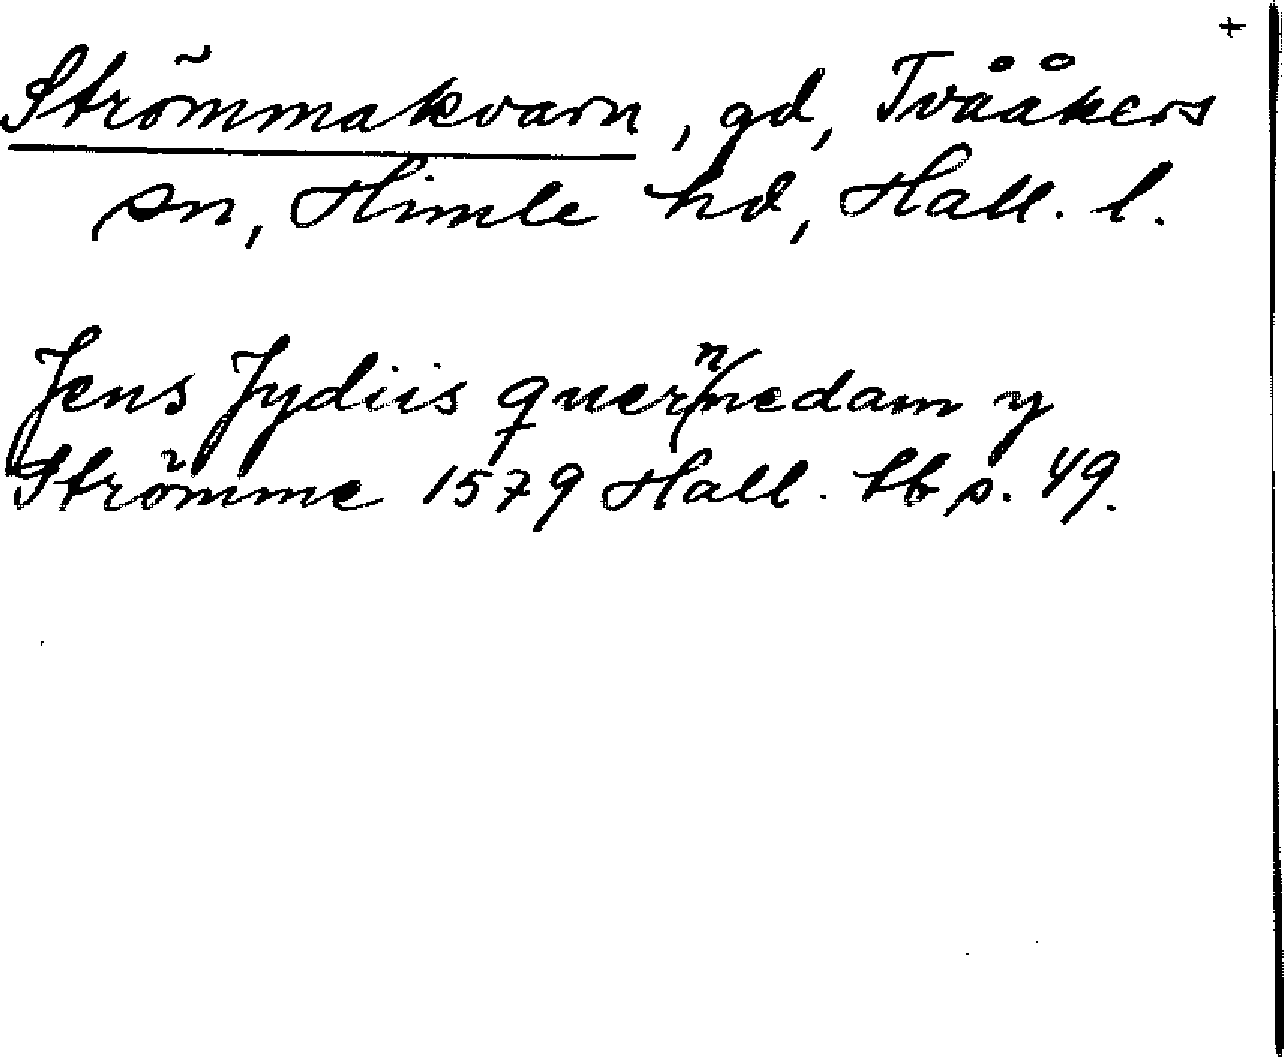 +
Strömmakvarn, gd, Tvååkers
sn, Himle hd, Hall. l.
Jens Jydiis quernnedam y
Strömme 1579 Hall. tb s. 49.